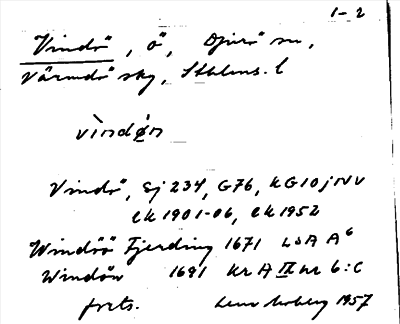 1-2
Vindö, ö, Djurö sn,
Värmdö sky, Sthlms. l
vìndø̀n
Vindö, Sj 234, G76, KG10jNV
ek 1901-06, ek 1952
Windöö Fjerding 1671 LSA A6
Windön 1691 KrA IX nr 6:C
forts. 1957